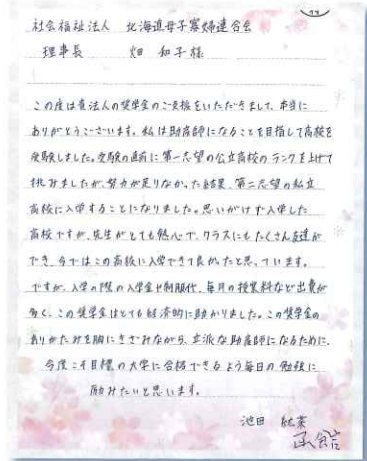 社会福祉法人 北海道母子寡婦連合会
理事長 畑 和子様
この度は貴法人の奨学金のご支援をいただきまして、本当に
ありがとうございます。私は助産師になることを目指して高校を
受験しました。受験の直前に第一志望の公立高校のランクを上げて
挑みましたが、努力が足りなかった結果、第二志望の私立
高校に入学することになりました。思いがけず入学した
高校ですが、先生がとても熱心で、クラスにもたくさん友達が
でき、今ではこの高校に入学できて良かったと思っています。
ですが、入学の際の入学金や制服代、毎月の授業料など出費が
多く、この奨学金はとても経済的に助かりました。この奨学金の
ありがたみを胸にきざみながら、立派な助産師になるために、
今度こそ目標の大学に合格できるよう毎日の勉強に
励みたいと思います。
池田 紘菜
函館